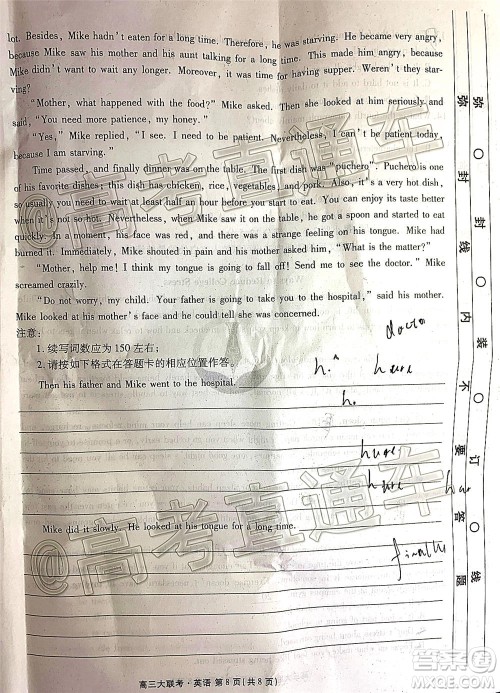 lot. Besides, Mike hadn't eaten for a long time. Therefore, he was starving. He became very angry,
because Mike saw his mother and his aunt talking for a long time. This made him angry, because
Mike didn't want to wait any longer. Moreover, it was time for having supper. Weren't they star-
ving?
"Mother, what happened with the food?" Mike asked. Then she looked at him seriously and
said, "You need more patience, my honey."
"Yes," Mike replied, "I see. I need to be patient. Nevertheless, I can't be patient today,
because I am starving."
Time passed, and finally dinner was on the table. The first dish was "puchero". Puchero is one
of his favorite dishes; this dish has chicken, rice, vegetables, and pork. Also, it is a very hot dish,
so usually you need to wait at least half an hour before you start to eat. You can enjoy its taste better
when it's not so hot. Nevertheless, when Mike saw it on the table, he got a spoon and started to eat
quickly. In a moment, his face was red, and there was a strange feeling on his tongue. Mike had
burned it. Immediately, Mike shouted in pain and his mother asked him, "What is the matter?"
"Mother, help me! I think my tongue is going to fall off! Send me to see the doctor." Mike
screamed crazily.
"Do not worry, my child. Your father is going to take you to the hospital," said his mother.
Mike looked at his mother's face and he could tell she was concerned.
注意:
1. 续写词数应为 150 左右;
2. 请按如下格式在答题卡的相应位置作答。
Then his father and Mike went to the hospital.
Mike did it slowly. He looked at his tongue for a long time.
高三大联考·英语 第 8 页(共 8 页)
弥 封 线 内 不 要 答 题
弥 封 线 装 订 线
@高考直通车
@高考直通车
答案圈